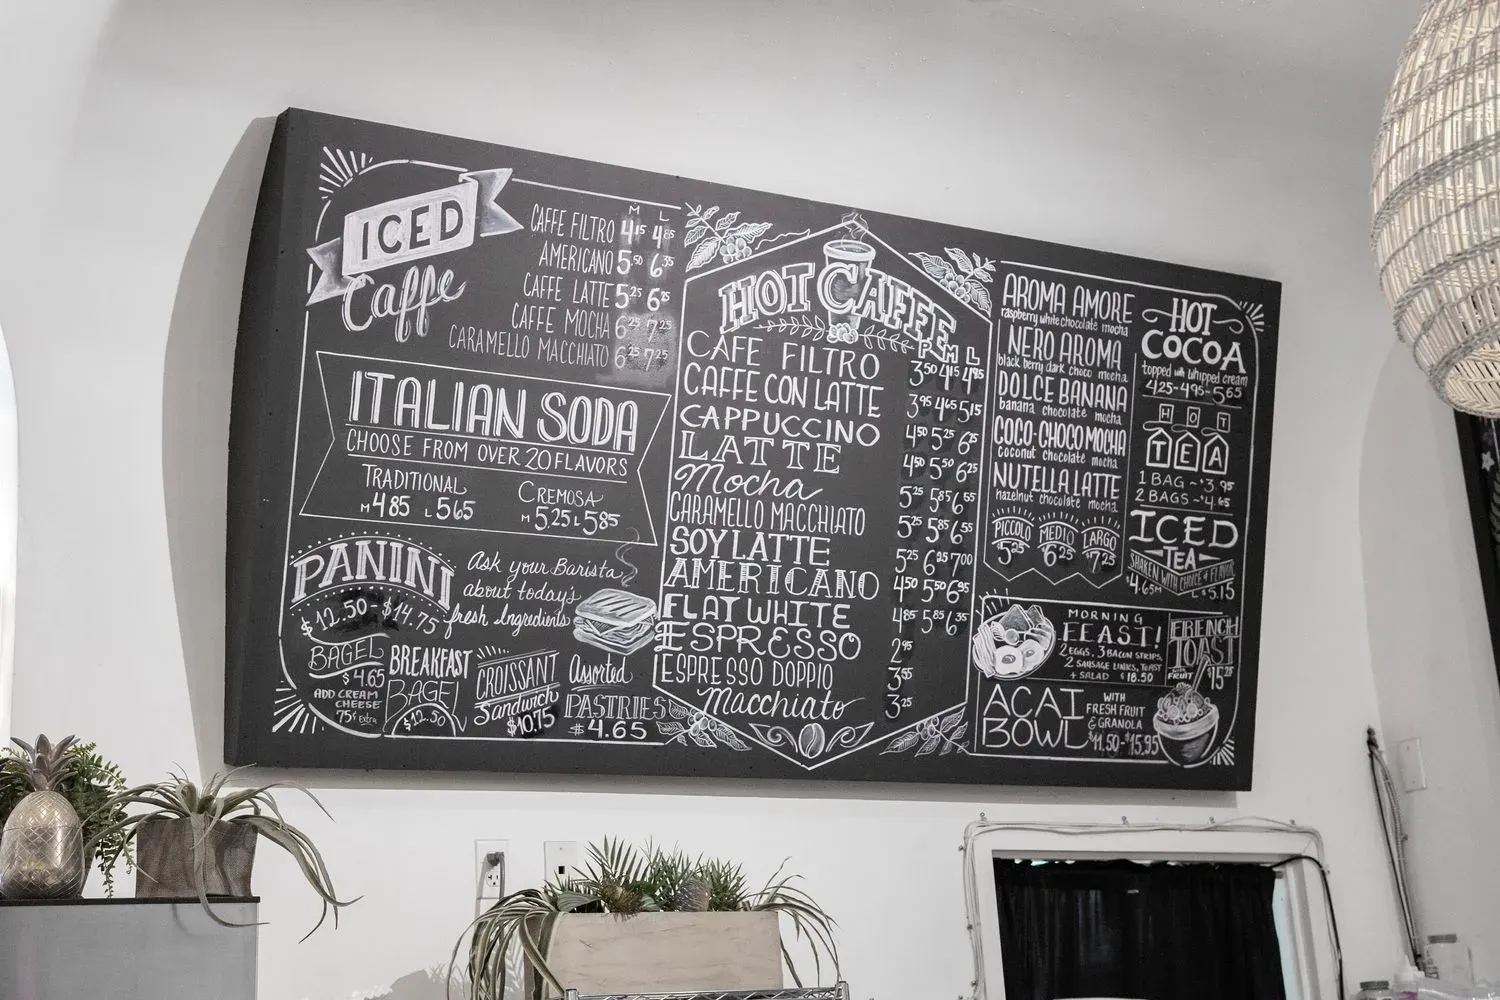 ICED
Caffe
M L
CAFFE FILTRO 4.15 4.85
AMERICANO 5.50 6.35
CAFFE LATTE 5.25 6.25
CAFFE MOCHA 6.25 7.25
CARAMELLO MACCHIATO 6.25 7.25
ITALIAN SODA
CHOOSE FROM OVER 20 FLAVORS
TRADITIONAL
M 4.85 L 5.65
CREMOSA
M 5.25 L 5.85
PANINI
$12.50-$14.75
Ask your Barista
about today's
fresh Ingredients
BAGEL
$4.65
ADD CREAM
CHEESE
75¢ Extra
BREAKFAST
BAGEL
$12.50
CROISSANT
Sandwich
$10.75
Assorted
PASTRIES
$4.65
HOT CAFFE
P M L
CAFE FILTRO 3.50 4.15 4.85
CAFFE CON LATTE 3.95 4.65 5.15
CAPPUCCINO 4.50 5.25 6.25
LATTE 4.50 5.50 6.25
Mocha 5.25 5.85 6.55
CARAMELLO MACCHIATO 5.25 5.85 6.55
SOY LATTE 5.25 6.25 7.00
AMERICANO 4.50 5.50 6.95
FLAT WHITE 4.85 5.85 6.35
ESPRESSO 2.95
ESPRESSO DOPPIO 3.55
Macchiato 3.25
AROMA AMORE
raspberry white chocolate mocha
NERO AROMA
black berry dark choco mocha
DOLCE BANANA
banana chocolate mocha
COCO-CHOCO MOCHA
coconut chocolate mocha
NUTELLA LATTE
hazelnut chocolate mocha
PICCOLO
5.25
MEDIO
6.25
LARGO
7.25
HOT
COCOA
topped with whipped cream
4.25-4.95-5.65
HOT
TEA
1 BAG ~ $3.95
2 BAGS ~ $4.65
ICED
TEA
SHAKEN WITH CHOICE of FLAVOR
$4.65M L $5.15
MORNING
FEAST!
2 EGGS, 3 BACON STRIPS,
2 SAUSAGE LINKS, TOAST
+ SALAD $18.50
FRENCH
TOAST
WITH
FRUIT $15.25
ACAI
BOWL
WITH
FRESH FRUIT
& GRANOLA
$11.50-$15.95